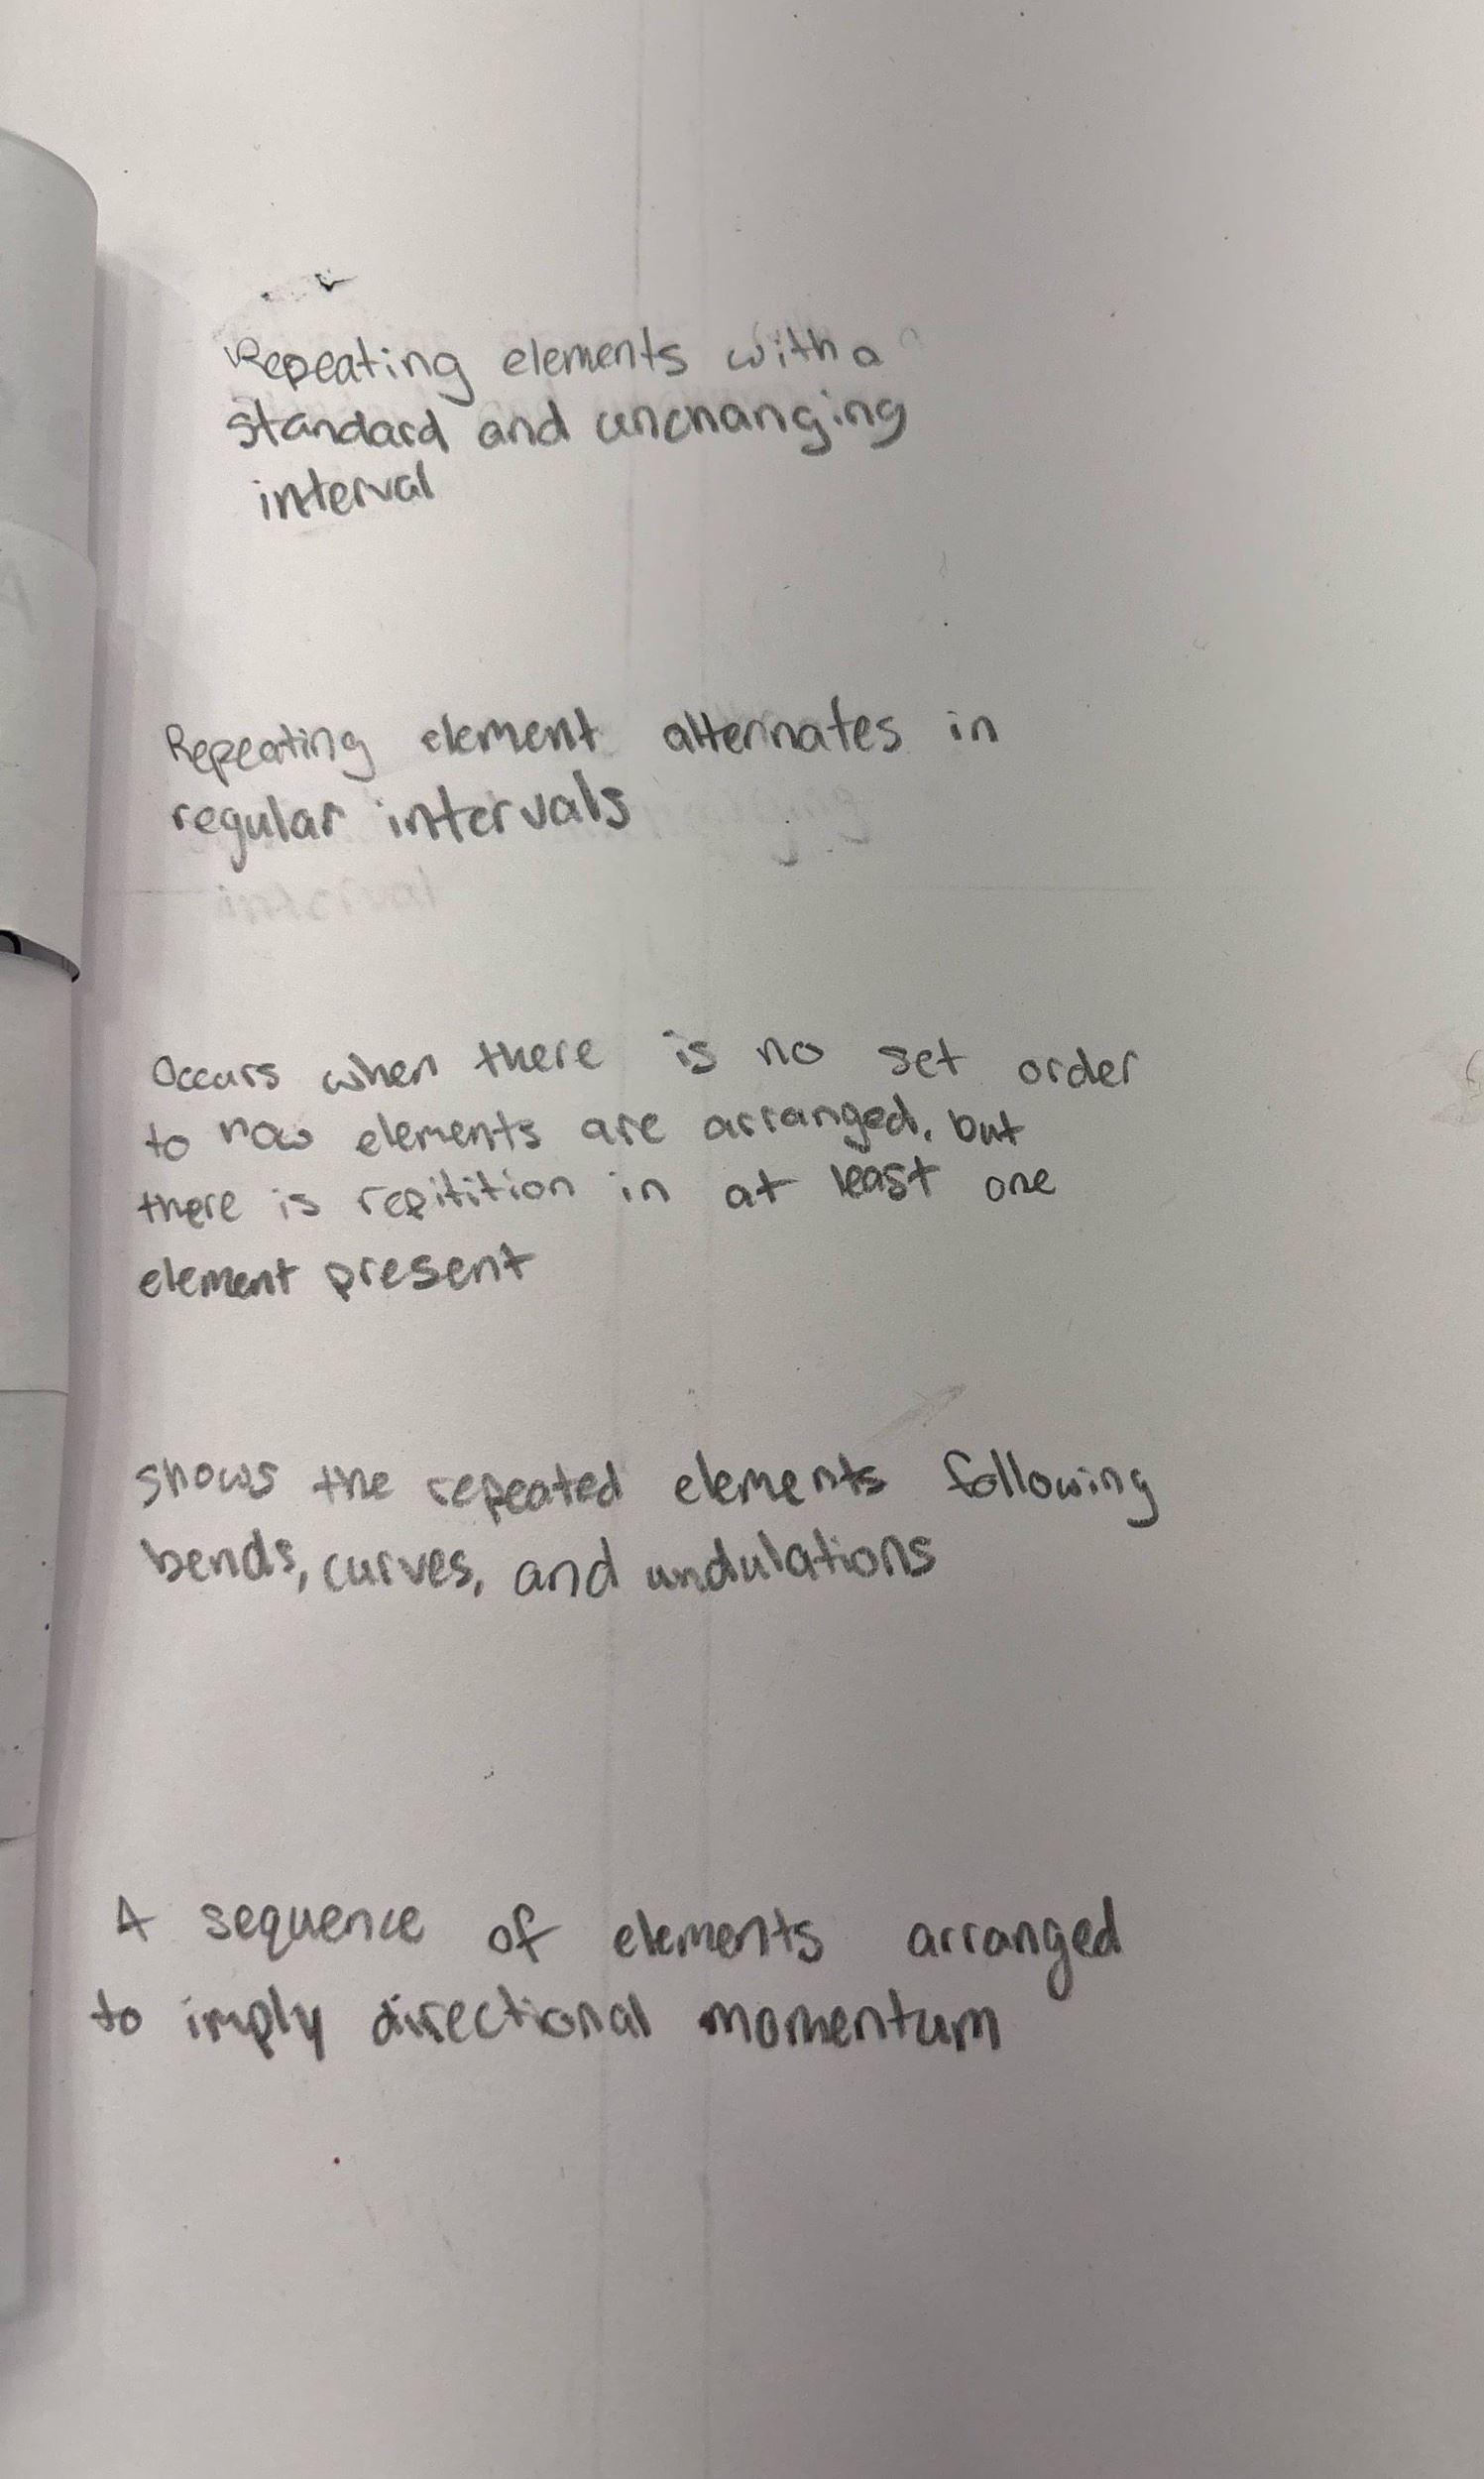 Repeating elements with a
standard and unchanging
interval
Repeating element alternates in
regular intervals
interval
Occurs when there is no set order
to how elements are arranged, but
there is repitition in at least one
element present
shows the repeated elements following
bends, curves, and undulations
A sequence of elements arranged
to imply directional momentum